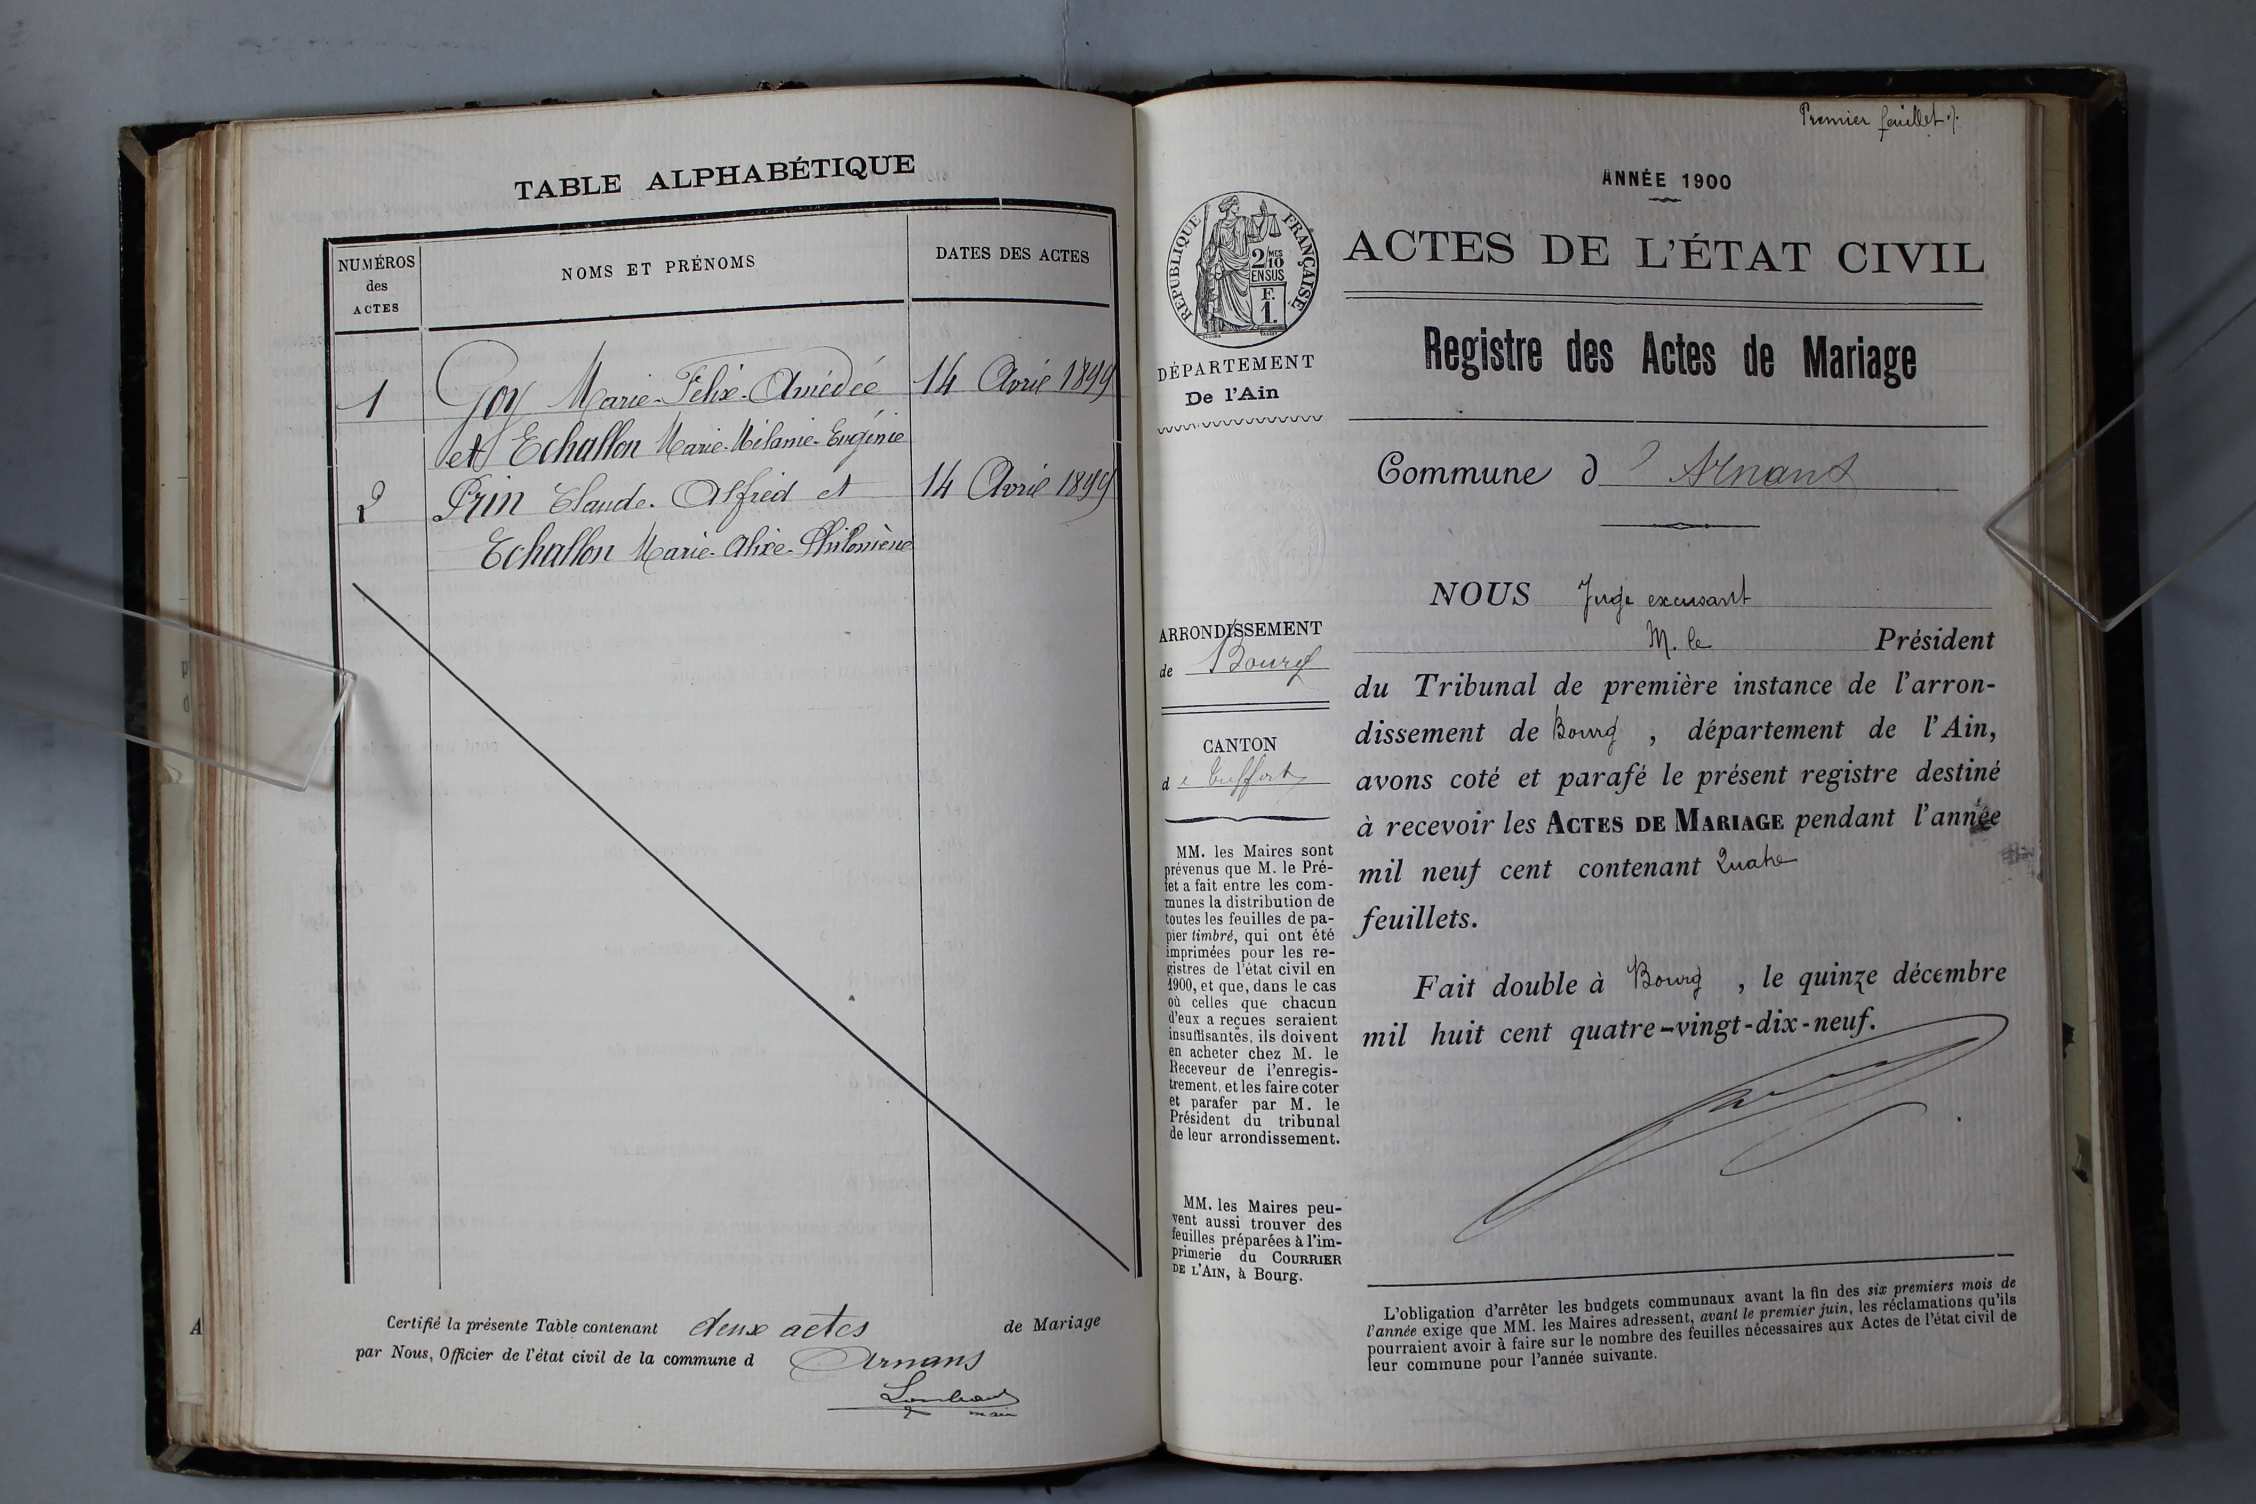 TABLE ALPHABÉTIQUE
NUMÉROS
des
ACTES
NOMS ET PRÉNOMS
DATES DES ACTES
1 Goy Marie-Felix-Amédée 14 Avril 1899
et Echallon Marie-Mélanie-Eugénie
2 Prin Claude-Alfred et 14 Avril 1899
Echallon Marie-Alixe-Philomène
Certifié la présente Table contenant deux actes de Mariage
par Nous, Officier de l'état civil de la commune d Arnans
maire
Premier feuillet
ANNÉE 1900
RÉPUBLIQUE FRANÇAISE
2/10 MES
EN SUS
F.
1.
ACTES DE L'ÉTAT CIVIL
Registre des Actes de Mariage
DÉPARTEMENT
De l'Ain
Commune d'Arnans
NOUS Juge excusant
M. le Président
du Tribunal de première instance de l'arron-
dissement de Bourg, département de l'Ain,
avons coté et parafé le présent registre destiné
à recevoir les ACTES DE MARIAGE pendant l'année
mil neuf cent contenant Quatre
feuillets.
Fait double à Bourg, le quinze décembre
mil huit cent quatre-vingt-dix-neuf.
ARRONDISSEMENT
de Bourg
CANTON
de Treffort
MM. les Maires sont
prévenus que M. le Pré-
fet a fait entre les com-
munes la distribution de
toutes les feuilles de pa-
pier timbré, qui ont été
imprimées pour les re-
gistres de l'état civil en
1900, et que, dans le cas
où celles que chacun
d'eux a reçues seraient
insuffisantes, ils doivent
en acheter chez M. le
Receveur de l'enregis-
trement, et les faire coter
et parafer par M. le
Président du tribunal
de leur arrondissement.
MM. les Maires peu-
vent aussi trouver des
feuilles préparées à l'im-
primerie du COURRIER
DE L'AIN, à Bourg.
L'obligation d'arrêter les budgets communaux avant la fin des six premiers mois de
l'année exige que MM. les Maires adressent, avant le premier juin, les réclamations qu'ils
pourraient avoir à faire sur le nombre des feuilles nécessaires aux Actes de l'état civil de
leur commune pour l'année suivante.